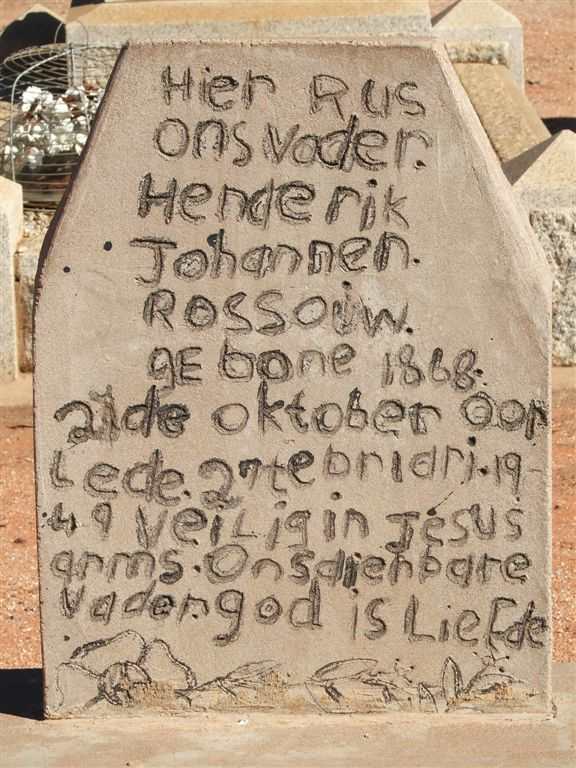 Hier Rus
ons vader.
Henderik
Johannen.
Rossouw.
gebone 1868.
21de oktober oor
Lede. 27 tebriari. 19-
49 veilig in Jesus
arms. Onsdienbare
vader. god is Liefde